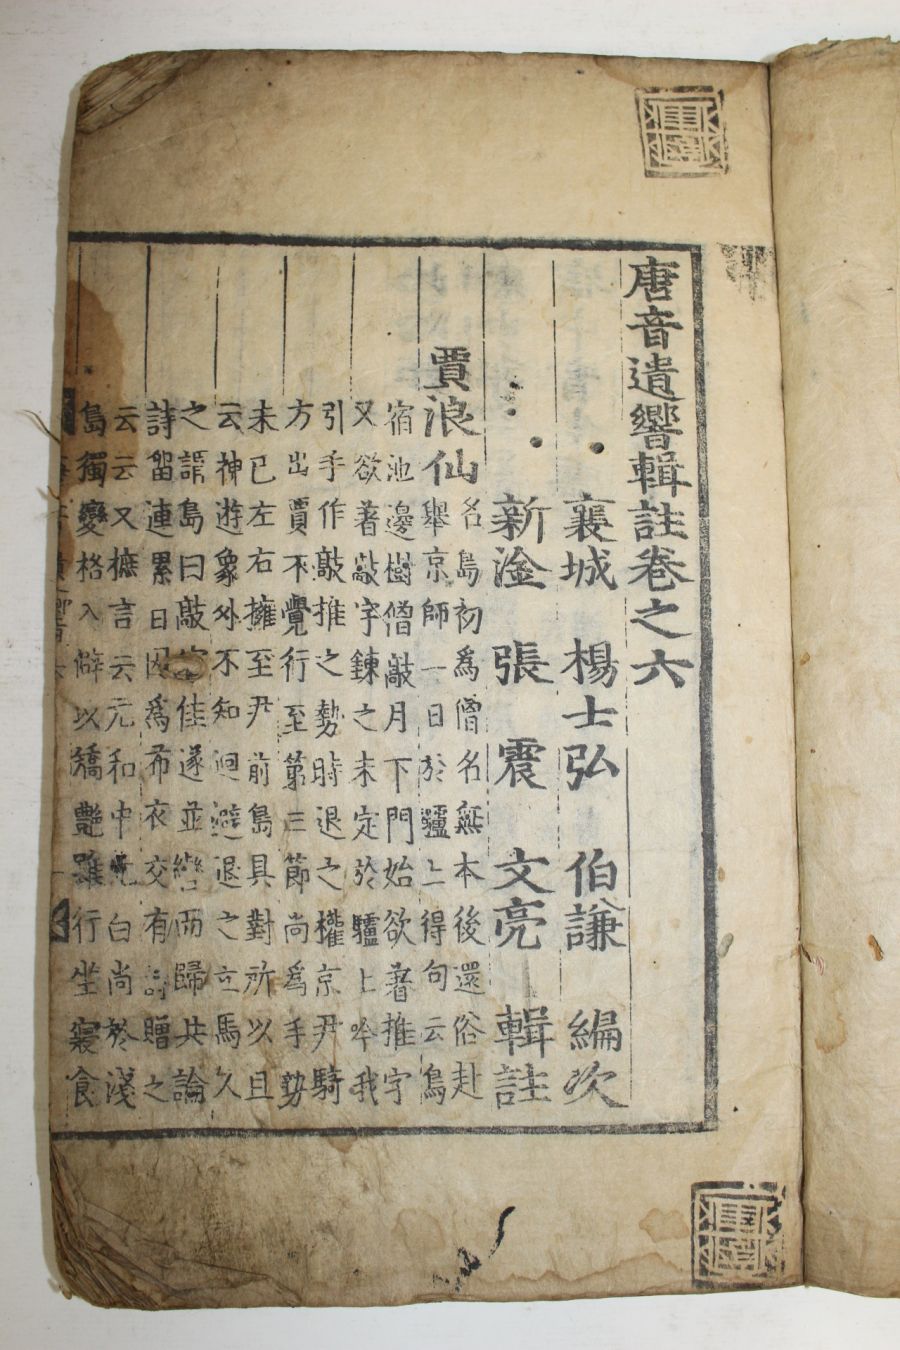 唐音遺響輯註卷之六
襄城 楊士弘 伯謙 編次
新淦 張震 文亮 輯註
賈浪仙
名島初為僧名無本後還俗赴
舉京師一日於驢上得句云鳥
宿池邊樹僧敲月下門始欲著推字
又欲著敲字鍊之未定於驢上吟哦
引手作敲推之勢時退之權京尹騎
方出賈不覺行至第三節尚為手勢
未已左右擁至尹前島具對所以且
云神遊象外不知迴避退之立馬久
之謂島曰敲字佳遂並轡而歸共論
詩留連累日因為布衣交有詩贈之
云云又摭言云元和中元白尚於淺
島獨變格入僻以矯艷雖行坐寢食